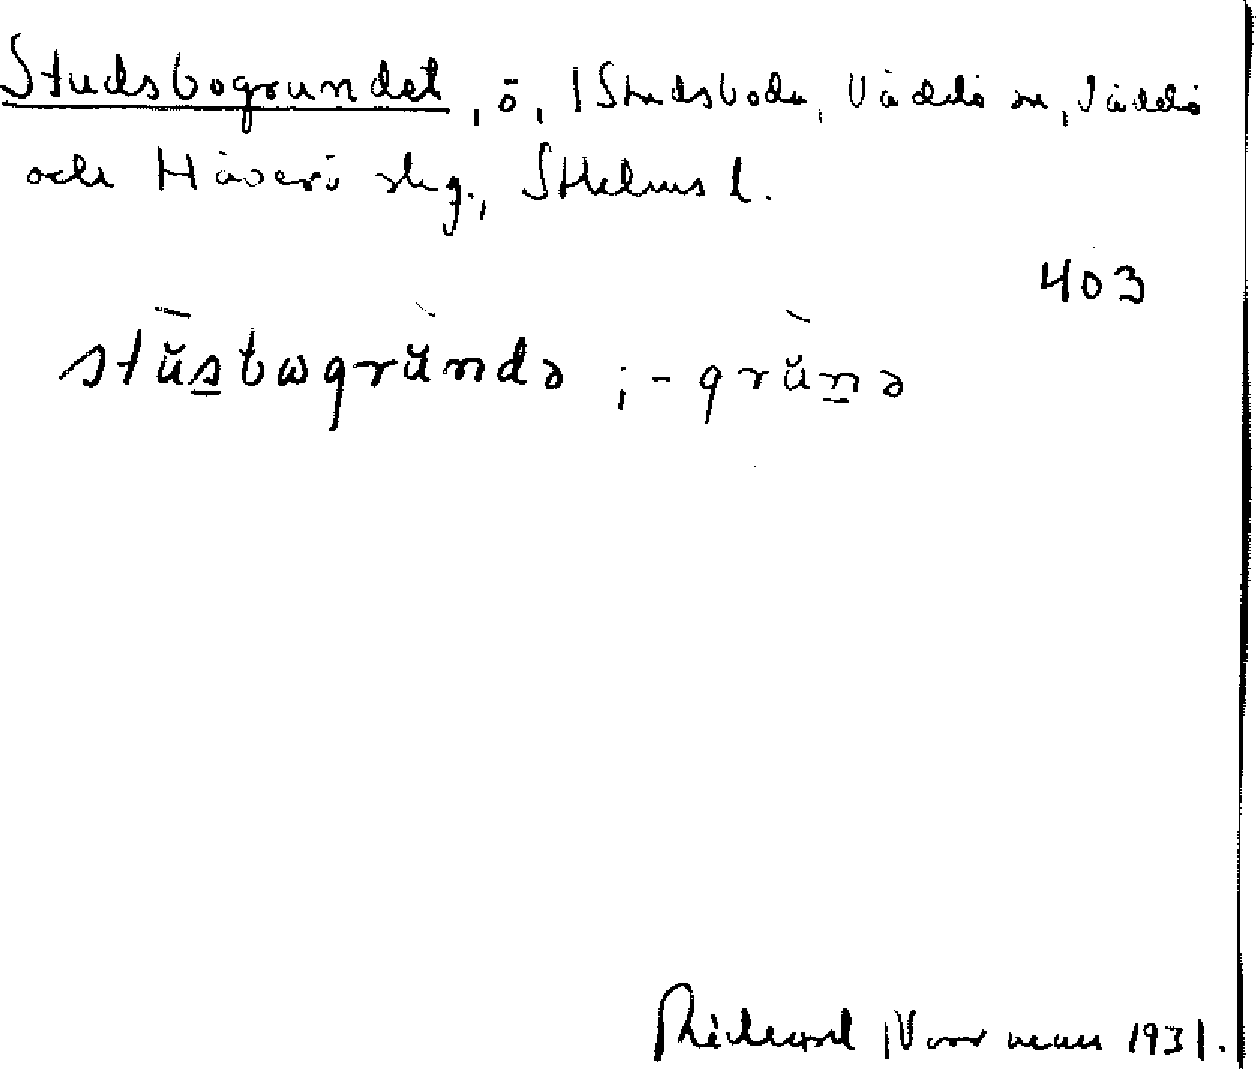 Studsbogrundet, ö, i Studsboda, Väddö sn, Väddö
och Häverö skg., Sthlms l.
403
stŭsboгrŭndə ; -grŭnə
Richard Norrman 1931.